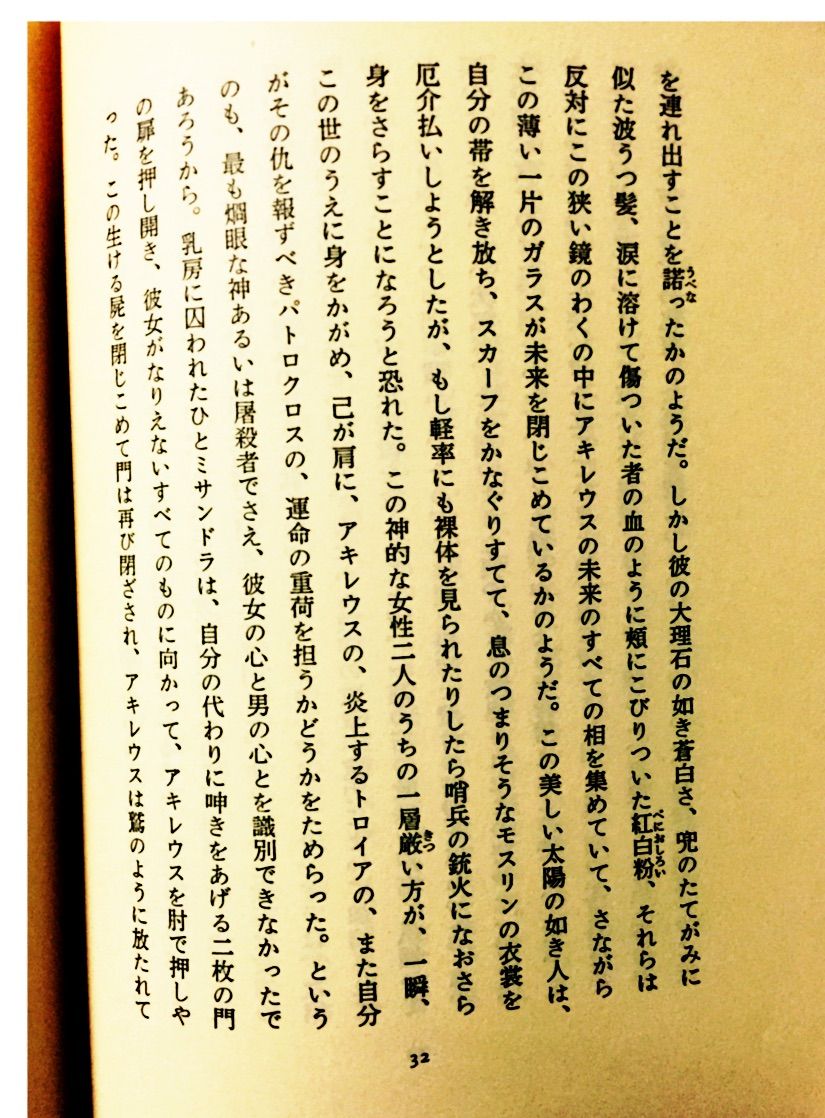 を連れ出すことを諾ったかのようだ。しかし彼の大理石の如き蒼白さ、兜のたてがみに
似た波うつ髪、涙に溶けて傷ついた者の血のように頰にこびりついた紅白粉、それらは
反対にこの狭い鏡のわくの中にアキレウスの未来のすべての相を集めていて、さながら
この薄い一片のガラスが未来を閉じこめているかのようだ。この美しい太陽の如き人は、
自分の帯を解き放ち、スカーフをかなぐりすてて、息のつまりそうなモスリンの衣裳を
厄介払いしようとしたが、もし軽率にも裸体を見られたりしたら哨兵の銃火になおさら
身をさらすことになろうと恐れた。この神的な女性二人のうちの一層厳い方が、一瞬、
この世のうえに身をかがめ、己が肩に、アキレウスの、炎上するトロイアの、また自分
がその仇を報ずべきパトロクロスの、運命の重荷を担うかどうかをためらった。という
のも、最も炯眼な神あるいは屠殺者でさえ、彼女の心と男の心とを識別できなかったで
あろうから。乳房に囚われたひとミサンドラは、自分の代わりに呻きをあげる二枚の門
の扉を押し開き、彼女がなりえないすべてのものに向かって、アキレウスを肘で押しや
った。この生ける屍を閉じこめて門は再び閉ざされ、アキレウスは鷲のように放たれて
うべな
べにおしろい
きつ
32